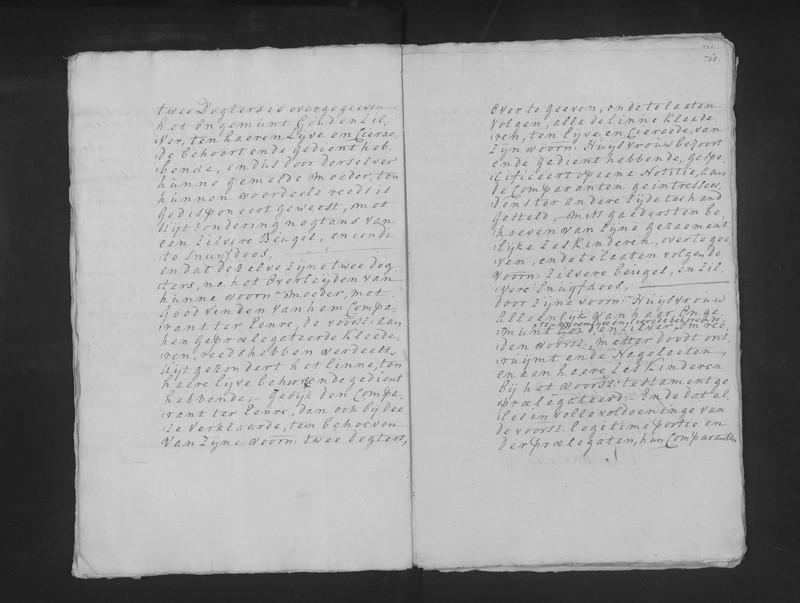 twee Dogters is overgegeeven
het Ongemunt Goud en Zil,
ver, ten haeren Lijve en Cierae,
de behoort ende gedient heb,
bende, en dus door derselver
hunne gemelde moeder, ten
hunnen voordeele reeds is
gedisponeert geweest, met
uijtzondering nogtans van
een Zilvere Beugel, en eendi
to Snuijfdoos,
en dat dezelve zijne twee dog,
ters, na het overleijden van
hunne voorn: moeder, met
goedvinden van hem Compa,
rant ter Eenre, de voorsz: aan
hen gepraelegateerde kleede,
ren, reeds hebben verdeelt,
uijtgezondert het linne, ten
haere lijve behoort ende gedient
hebbende, – gelijk den Compa,
rant ter Eenre, dan ook bij dee
ze verklaarde, ten behoeven
van Zijne voorn: twee dogters,
760.
over te geeven, ende te laaten
volgen, alle de linne kleede
ren, ten lijve en Cieraede, van
zijn voorn: Huijsvrouw behoort
ende gedient hebbende, gespe
cificeert op eene Notitie, aan
de Comparanten geintressee,
dens ter andere Zijde ter hand
gesteld, – mitsgaeders ten be,
hoeven van zijne gezaement
lijke zes kinderen, over te gee,
ven, ende te laaten volgen de
voorn: zilvere beugel, en zil
vere Snuijfdoos,
door zijne voorn: Huijsvrouw
alleenlijk van haer Onge,
munt Goud en Zilver
den voorsz: metter doodt ont,
ruijmt ende Nagelaeten,
en aan haere zes kinderen
bij het voorsz: testament ge
praelegateerd: – Ende dat al,
les in volle voldoeninge van
de voorsz: legitime portie en
der praelegaten, hun Comparanten